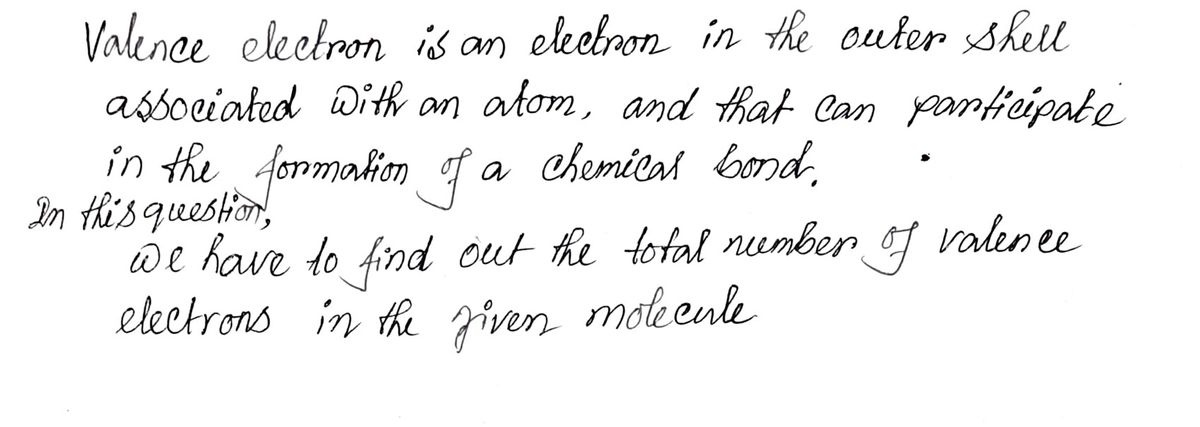 Valence electron is an electron in the outer shell
associated with an atom, and that can participate
in the formation of a chemical bond.
In this question,
we have to find out the total number of valence
electrons in the given molecule